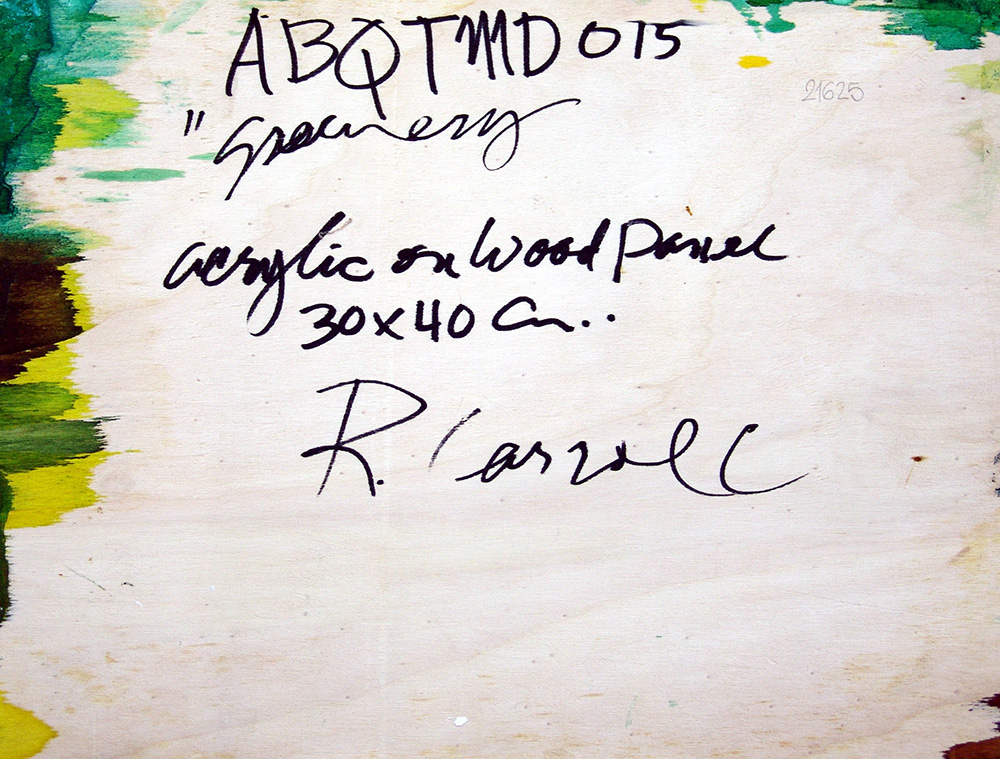 ABQTMD015
21625
"Greenery
acrylic on Wood Panel
30x40 Cm..
R. Carroll